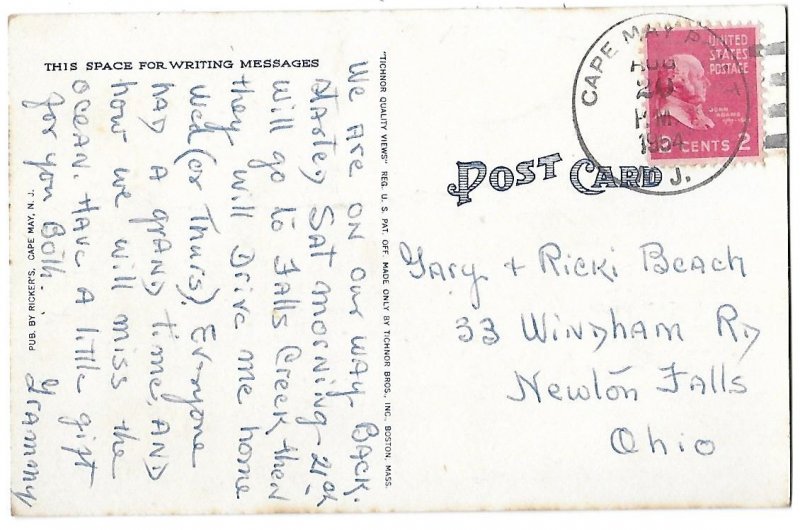 THIS SPACE FOR WRITING MESSAGES
We are on our way back.
Started Sat morning - 21st
will go to Falls Creek then
they will Drive me home
Wed (or Thurs). Everyone
had a grand time, and
how we will miss the
ocean. Have a little gift
for you Both.
Grammy
PUB. BY RICKER'S, CAPE MAY, N. J.
"TICHNOR QUALITY VIEWS" REG. U. S. PAT. OFF. MADE ONLY BY TICHNOR BROS., INC., BOSTON, MASS.
CAPE MAY
AUG
20
P.M.
1954
N.J.
UNITED
STATES
POSTAGE
JOHN
ADAMS
CENTS 2
POST CARD
Gary + Ricki Beach
33 Windham Rd
Newton Falls
Ohio